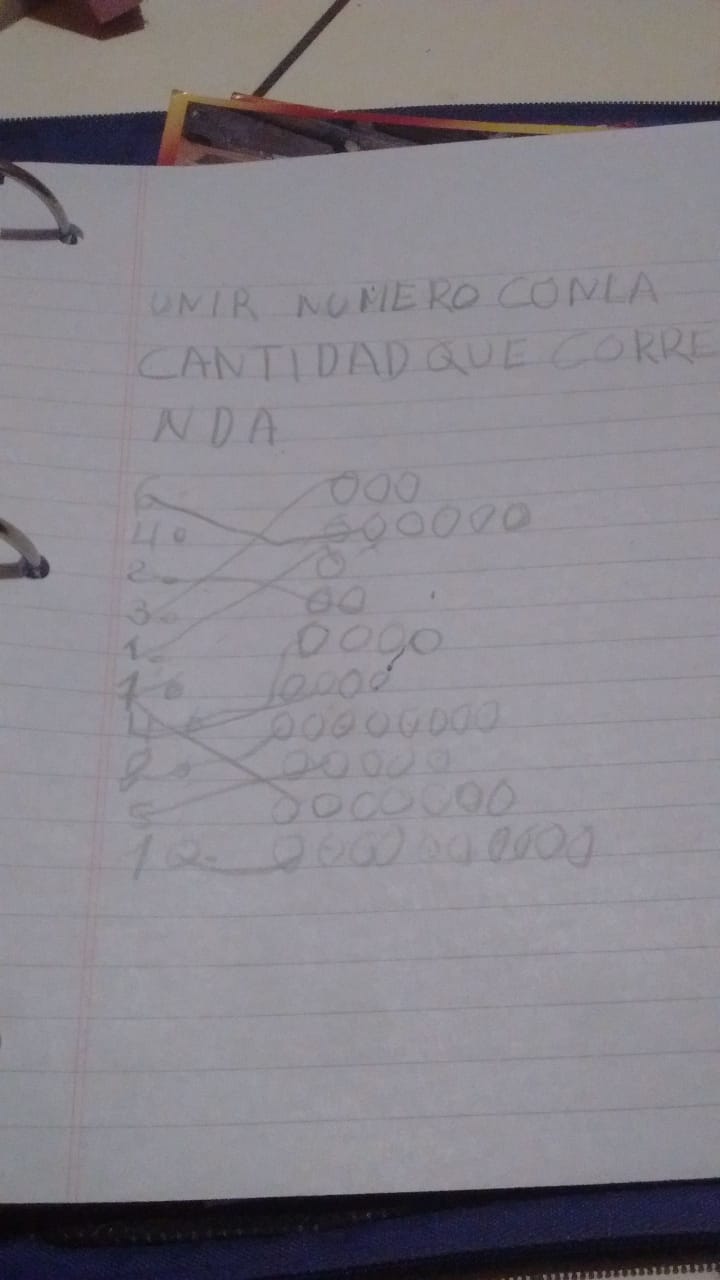 UNIR NUMERO CON LA
CANTIDAD QUE CORRE
NDA
6 000
4 000000
2 0
3 00
1 0000
0000
4 00000000
00000
5 0000000
10